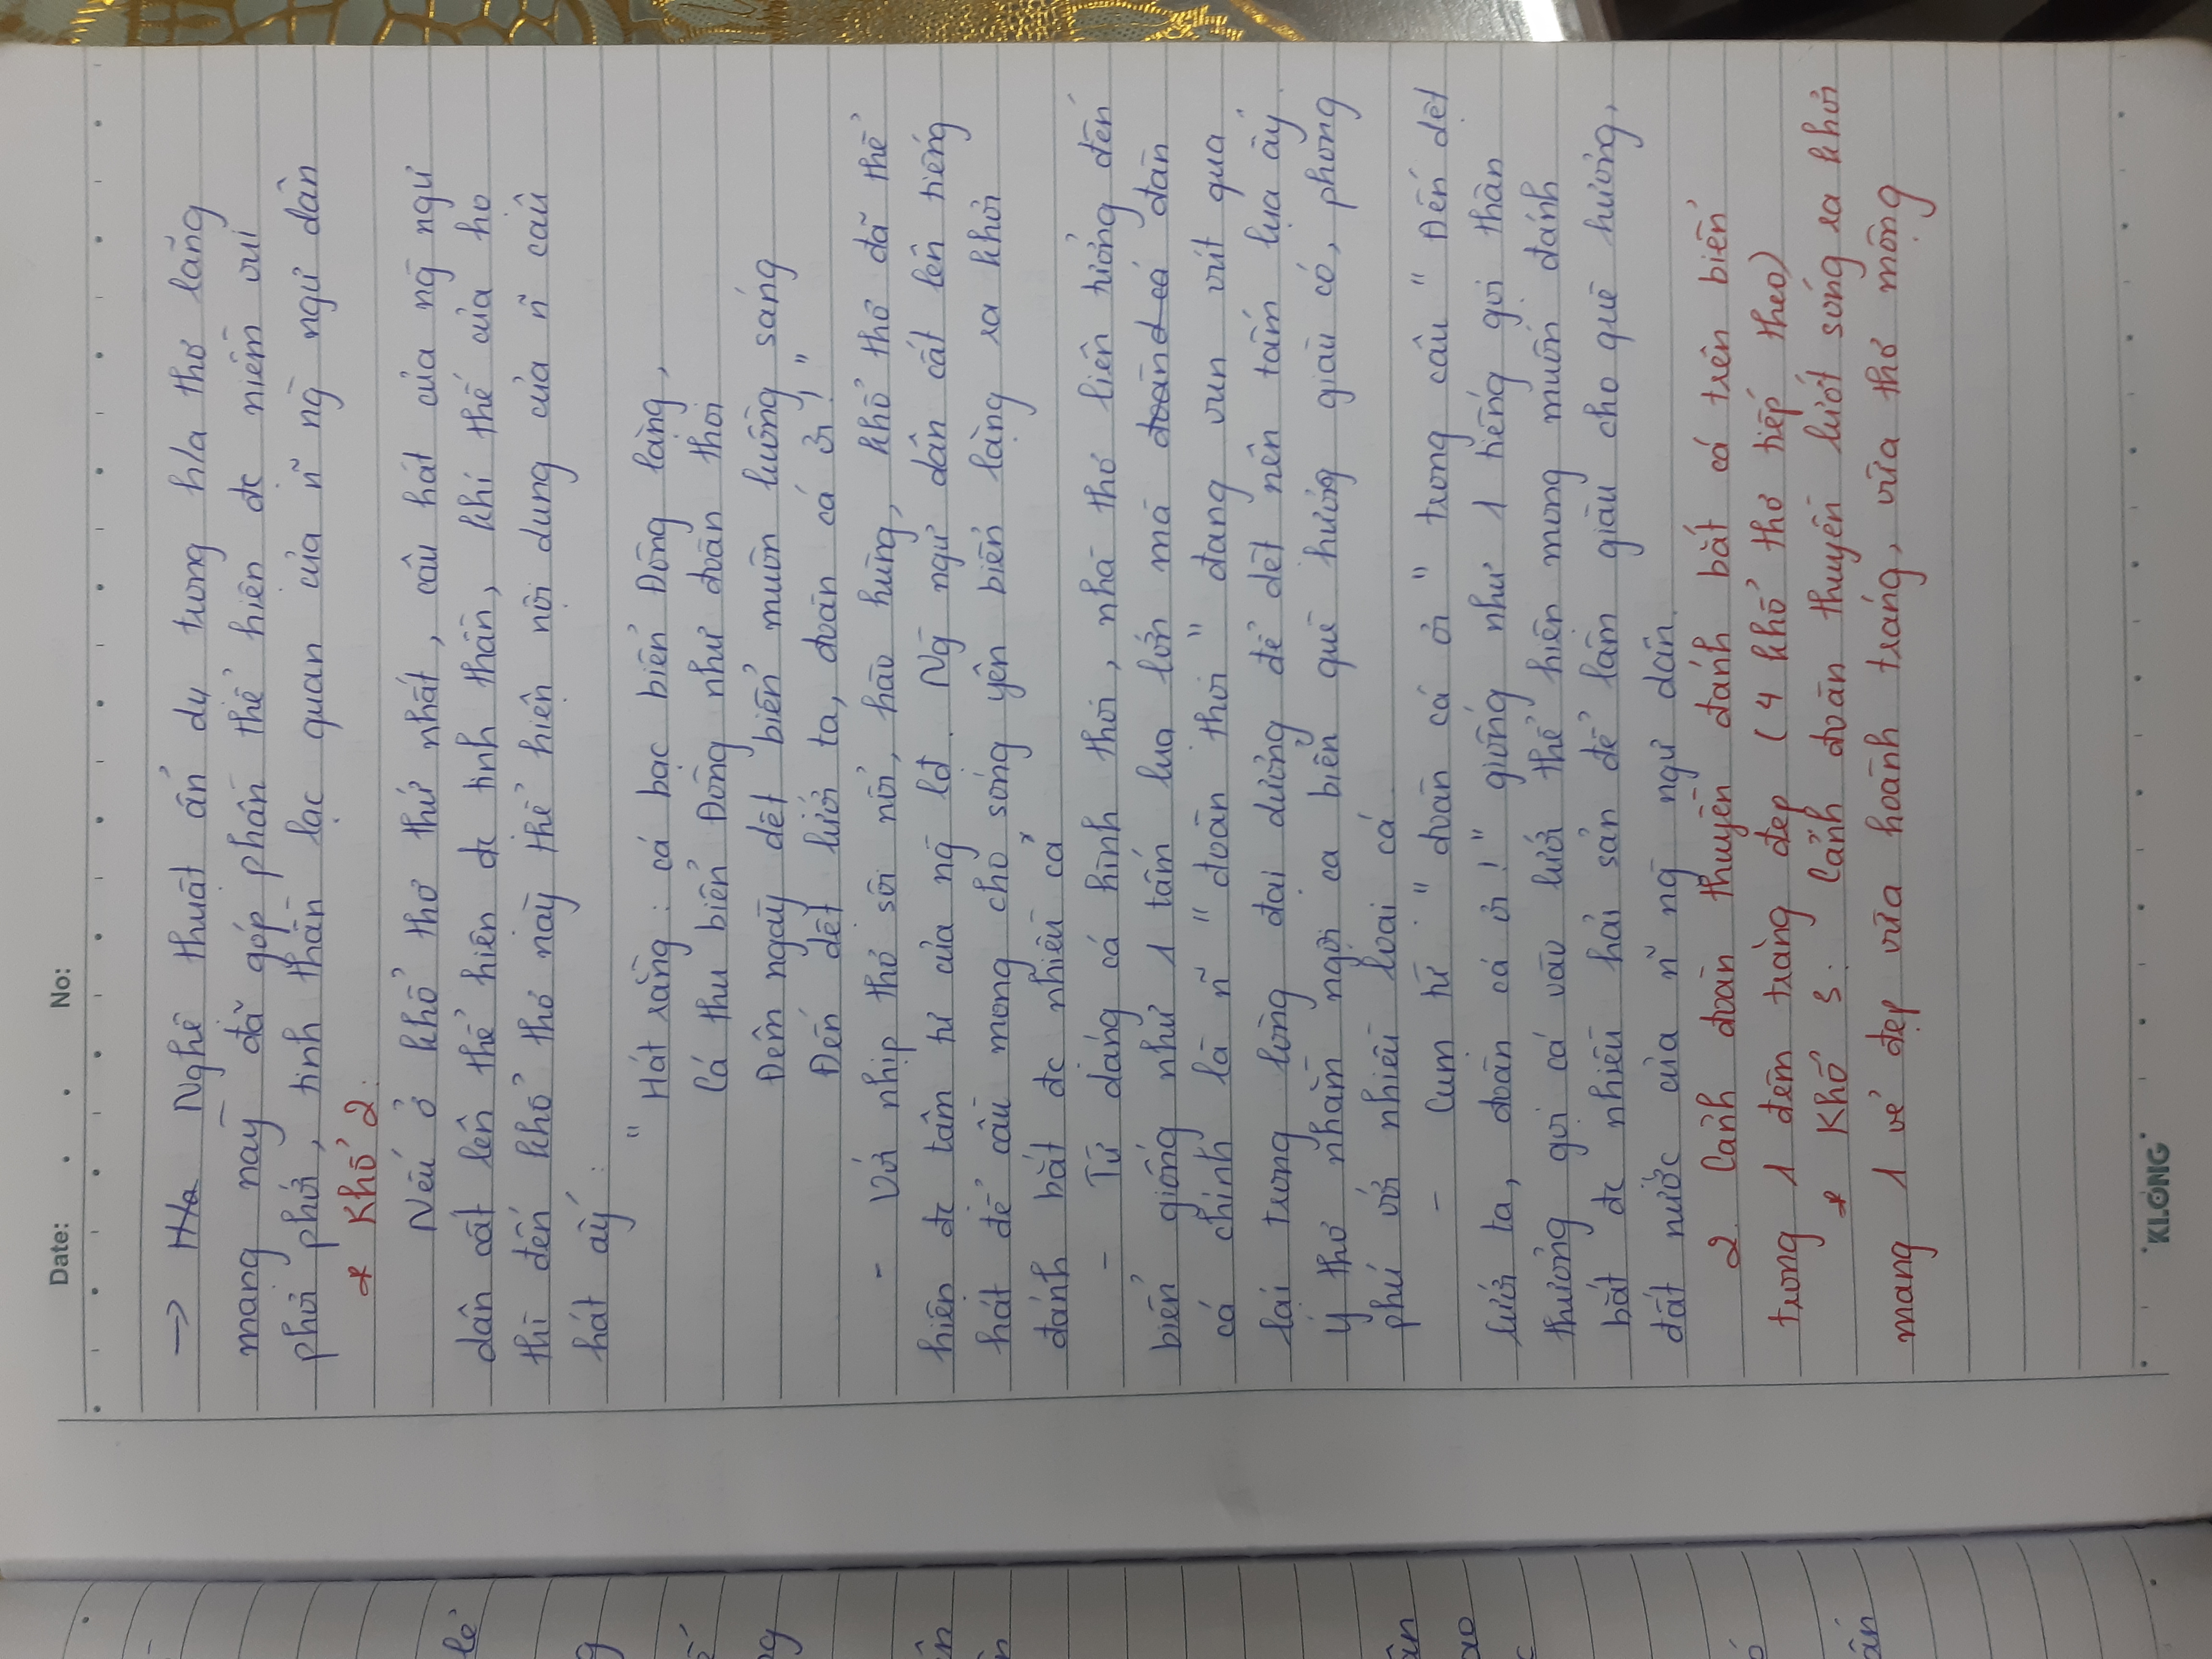 Date: . . No:
→ Nghệ thuật ẩn dụ trong h/a thơ lãng
mạng này đã góp phần thể hiện đc niềm vui
phơi phới, tinh thần lạc quan của ñ ng̀ ngư dân
* Khổ 2:
Nếu ở khổ thơ thứ nhất, câu hát của ng̀ ngư
dân cất lên thể hiện đc tinh thần, khí thế của họ
thì đến khổ thơ này thể hiện nội dung của ñ câu
hát ấy :
" Hát rằng : cá bạc biển Đông lặng,
Cá thu biển Đông như đoàn thoi
Đêm ngày dệt biển muôn luồng sáng
Đến dệt lưới ta, đoàn cá ơi! "
- Với nhịp thơ sôi nổi, hào hùng, khổ thơ đã thể
hiện đc tâm tư của ng̀ lđ. Ng̀ ngư dân cất lên tiếng
hát để cầu mong cho sóng yên biển lặng ra khơi
đánh bắt đc nhiều cá
- Từ dáng cá hình thoi, nhà thơ liên tưởng đến
biển giống như 1 tấm lụa lớn mà đoàn cá đàn
cá chính là ñ " đoàn thoi " đang vun vút qua
lại trong lòng đại dương để dệt nên tấm lụa ấy.
Ý thơ nhằm ngợi ca biển quê hương giàu có, phong
phú với nhiều loài cá.
- Cụm từ " đoàn cá ơi " trong câu " Đến dệt
lưới ta, đoàn cá ơi! " giống như 1 tiếng gọi thân
thương gọi cá vào lưới thể hiện mong muốn đánh
bắt đc nhiều hải sản để làm giàu cho quê hương,
đất nước của ñ ng̀ ngư dân.
2. Cảnh đoàn thuyền đánh bắt cá trên biển
trong 1 đêm trăng đẹp (4 khổ thơ tiếp theo)
* Khổ 3: Cảnh đoàn thuyền lướt sóng ra khơi
mang 1 vẻ đẹp vừa hoành tráng, vừa thơ mộng
KLONG